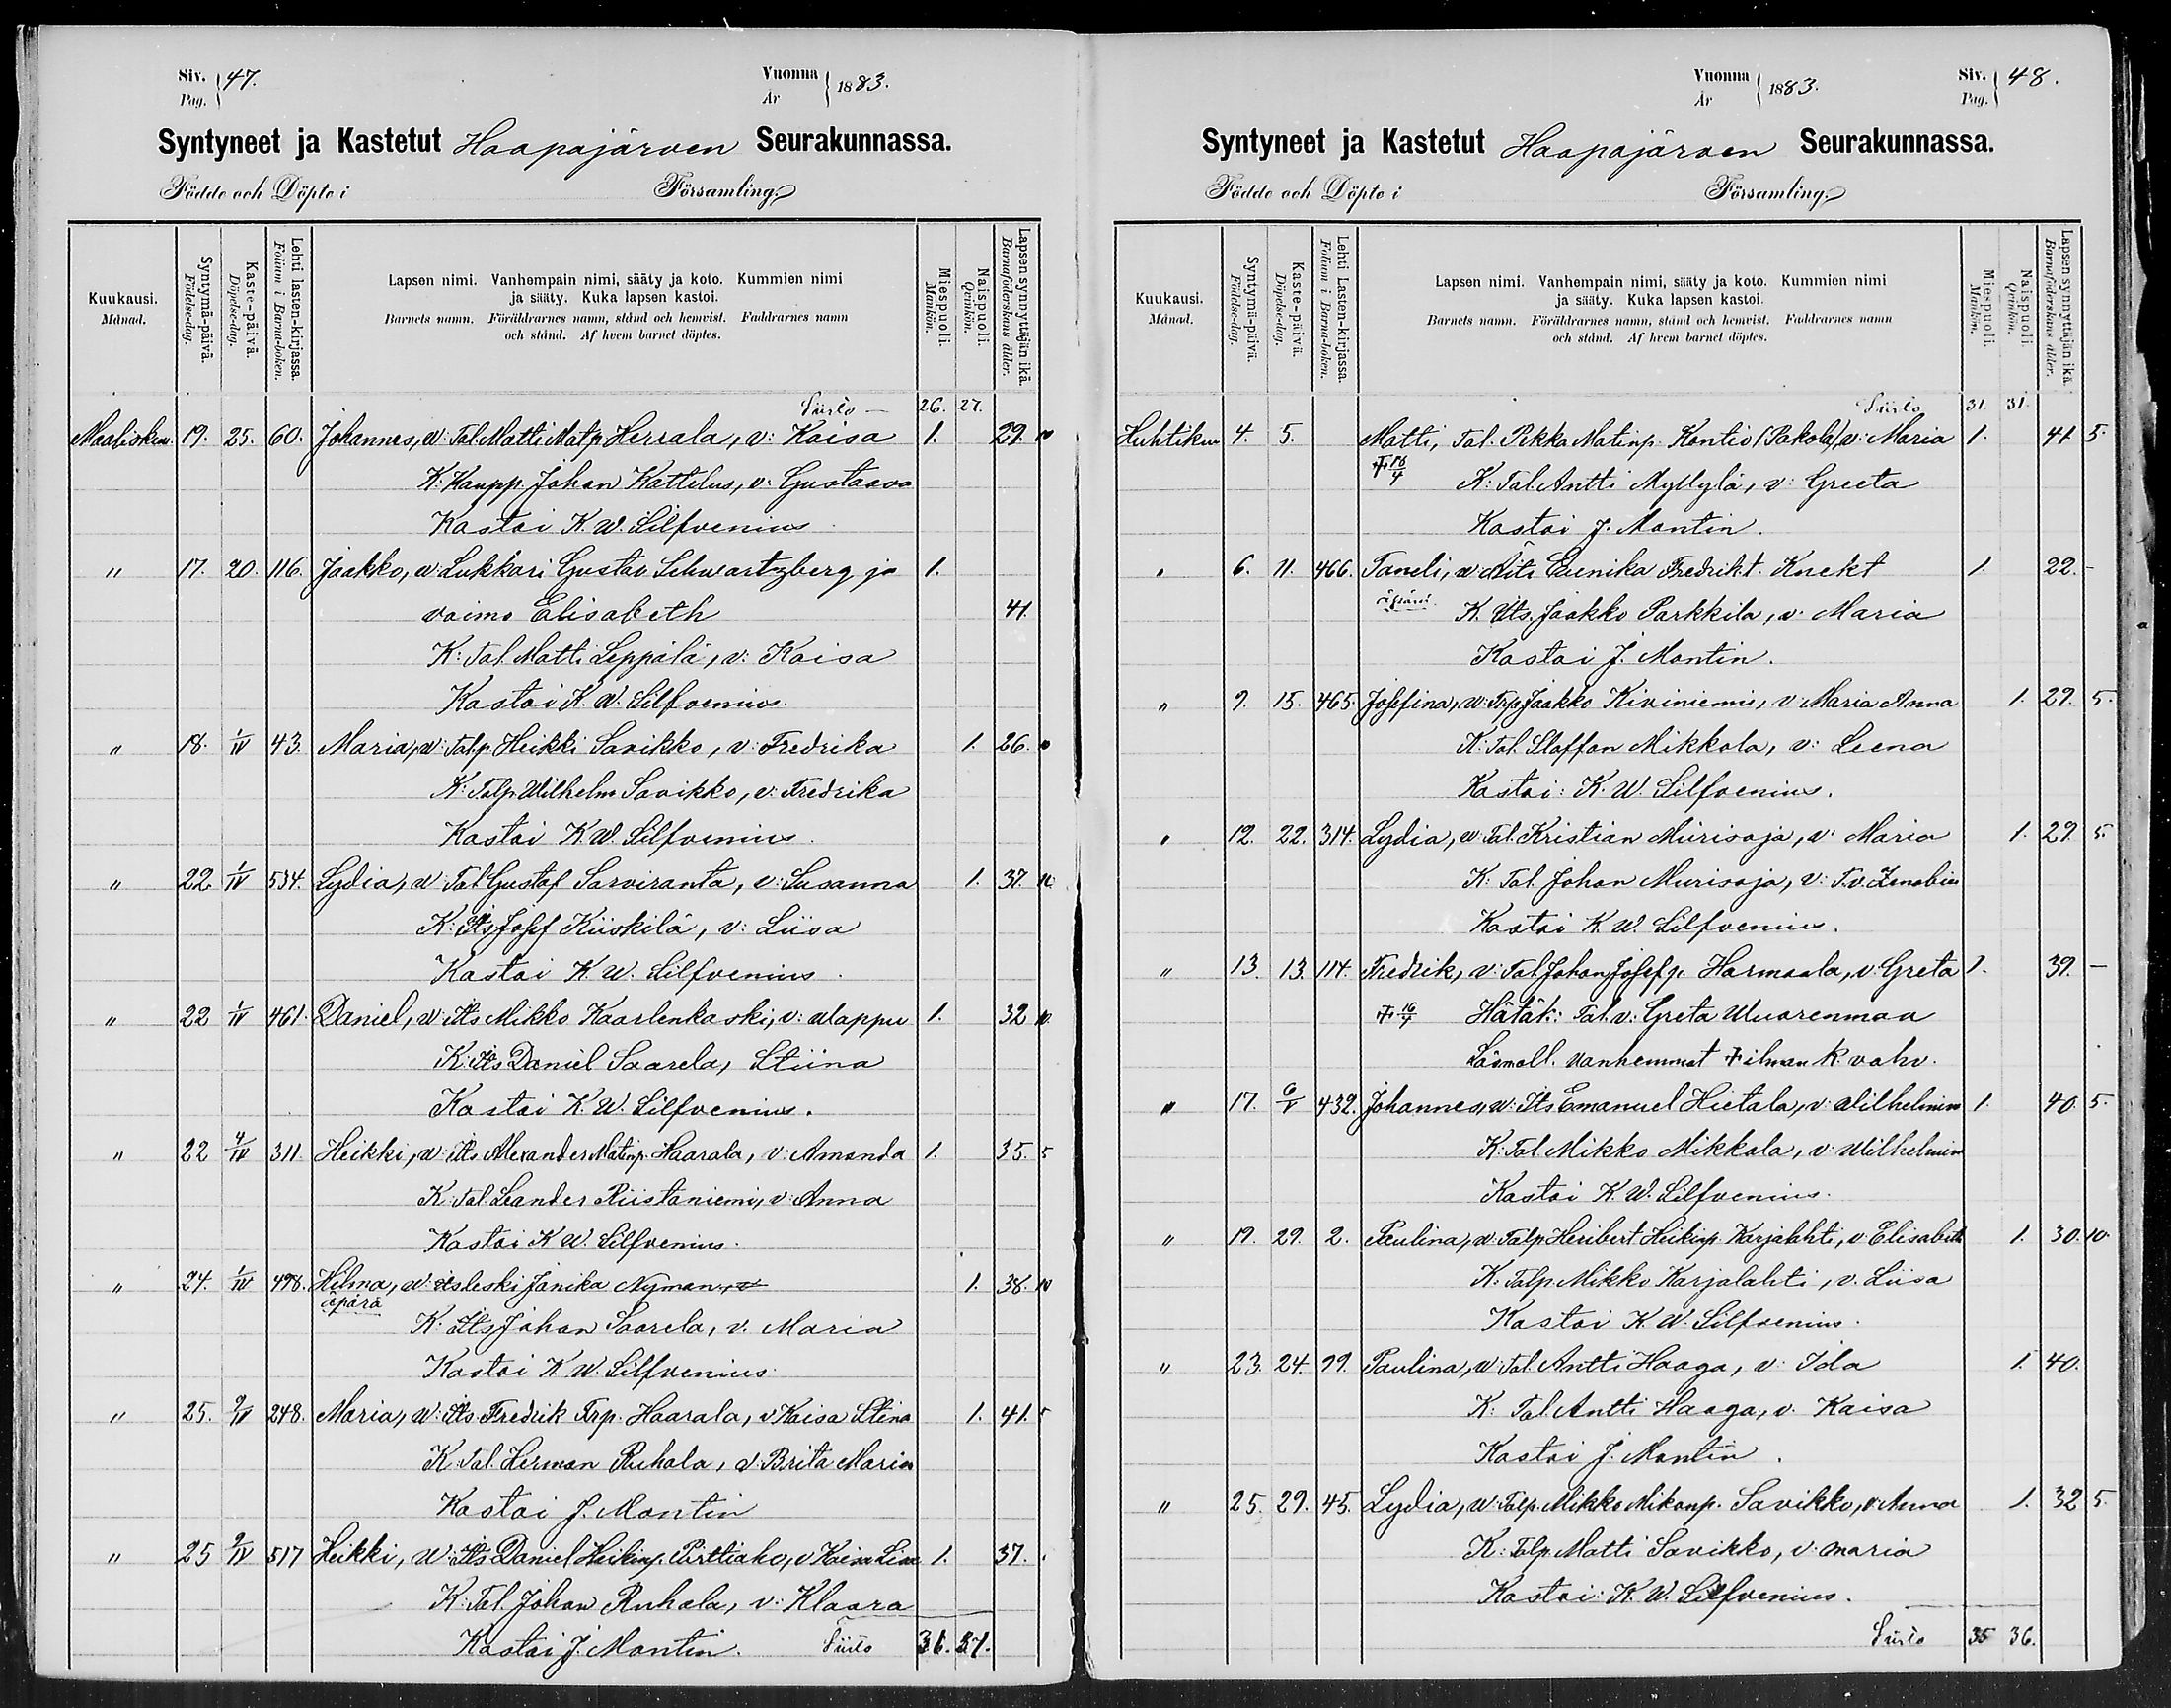 Siv. 47.
Pag.
Vuonna 1883.
År
Syntyneet ja Kastetut Haapajärven Seurakunnassa.
Födde och Döpte i Församling.
Kuukausi.
Månad.
Syntymä-päivä.
Födelse-dag.
Kaste-päivä.
Döpelse-dag.
Lehti lasten-kirjassa.
Folium i Barna-boken.
Lapsen nimi. Vanhempain nimi, sääty ja koto. Kummien nimi
ja sääty. Kuka lapsen kastoi.
Barnets namn. Föräldrarnes namn, stånd och hemvist. Faddrarnes namn
och stånd. Af hvem barnet döptes.
Miespuoli.
Mankön.
Naispuoli.
Qvinkön.
Lapsen synnyttäjän ikä.
Barnaföderskans ålder.
Siirto — 26. 27.
Maalisk. 19. 25. 60. Johannes, v: Tal. Matti Matp. Herrala, v: Kaisa 1. 29. 10
K: Kaupp. Johan Kattelus, v: Gustaava
Kastoi K. W. Silfvenius
" 17. 20. 116. Jaakko, v: Lukkari Gustav Schwartzberg ja 1.
vaimo Elisabeth 41.
K: Tal. Matti Leppälä, v: Kaisa
Kastoi K. W. Silfvenius.
" 18. 1/IV 43. Maria, v: Talp. Heikki Savikko, v: Fredrika 1. 26. 10
K: Talp. Wilhelm Savikko, v: Fredrika
Kastoi K. W. Silfvenius.
" 22. 1/IV 534. Lydia, v: Tal. Gustaf Sarviranta, v: Susanna 1. 37. 10.
K: Its Josef Kiiskilä, v: Liisa
Kastoi K. W. Silfvenius.
" 22 1/IV 461. Daniel, v: Its Mikko Kaarlenkoski, v: Wappu 1. 32 10.
K: Its Daniel Saarela, Stiina
Kastoi K. W. Silfvenius.
" 22 4/IV 311. Heikki, v: Its. Alexander Matinp. Haarala, v: Amanda 1. 35. 5
K: Tal. Leander Riistaniemi, v: Anna
Kastoi K. W. Silfvenius.
" 24. 1/IV 498. Hilma, v: Itsleski Janika Nyman, v 1. 38. 10
äpärä
K: Its Johan Saarela, v. Maria
Kastoi K. W. Silfvenius.
" 25. 9/IV 248. Maria, v: Its. Fredrik Frp. Haarala, v Kaisa Stina 1. 41. 5
K. Tal. Herman Ruhala, v. Brita Maria
Kastoi J. Montin
" 25 9/IV 517 Heikki, v: Its Daniel Heikinp. Pirttiaho, v Kaisa Liisa 1. 37.
K: Tal. Johan Ruhala, v: Klaara
Kastoi J. Montin. Siirto 31. 31.
Vuonna 1883.
År
Siv. 48.
Pag.
Syntyneet ja Kastetut Haapajärven Seurakunnassa.
Födde och Döpte i Församling.
Kuukausi.
Månad.
Syntymä-päivä.
Födelse-dag.
Kaste-päivä.
Döpelse-dag.
Lehti Lasten-kirjassa.
Folium i Barna-boken.
Lapsen nimi. Vanhempain nimi, sääty ja koto. Kummien nimi
ja sääty. Kuka lapsen kastoi.
Barnets namn. Föräldrarnes namn, stånd och hemvist. Faddrarnes namn
och stånd. Af hvem barnet döptes.
Miespuoli.
Mankön.
Naispuoli.
Qvinkön.
Lapsen synnyttäjän ikä.
Barnaföderskans ålder.
Siirto 31. 31.
Huhtikuu 4. 5. Matti, Tal. Pekka Matinp. Kontio (Pakola), v: Maria 1. 41 5.
† 16/4 K: Tal. Antti Myllylä, v: Greeta
Kastoi J. Montin.
" 6. 11. 466. Taneli, v. Äiti Eenika Fredrik.t. Knekt 1. 22. -
äpärä. K. Its. Jaakko Parkkila, v: Maria
Kastoi J. Montin.
" 9. 15. 465. Josefina, v: Trp. Jaakko Kiviniemi, v: Maria Anna 1. 29. 5.
K: Tal. Staffan Mikkola, v: Leena
Kastoi: K. W. Silfvenius.
" 12. 22. 314. Lydia, v: Tal. Kristian Muurisoja, v: Maria 1. 29. 5.
K: Tal. Johan Murisoja, v: T.v. Zenobia
Kastoi K. W. Silfvenius.
" 13. 13. 114. Fredrik, v: Tal. Johan Josef p. Harmaala, v: Greta 1. 39. —
† 16/4 Hätäk: Tal. v: Greta Wuorenmaa
Läsnoll. Vanhemmat † ilman k. vahv.
" 17. 6/V 432. Johannes, v: Its Emanuel Hietala, v: Wilhelmiina 1. 40. 5.
K: Tal. Mikko Mikkola, v: Wilhelmiina
Kastoi K. W. Silfvenius.
" 19. 29. 2. Paulina, v: Talp. Heribert Heikinp. Karjalahti, v Elisabeth 1. 30. 10.
K: Talp. Mikko Karjalahti, v. Liisa
Kastoi K. W. Silfvenius.
" 23. 24. 99. Paulina, v: Tal. Antti Haaga, v: Ida 1. 40.
K: Tal. Antti Haaga, v. Kaisa
Kastoi J. Montin.
" 25. 29. 45. Lydia, v: Talp. Mikko Mikonp. Savikko, v: Anna 1. 32 5.
K: Talp. Matti Savikko, v: Maria
Kastoi: K. W. Silfvenius.
Siirto 35 36.